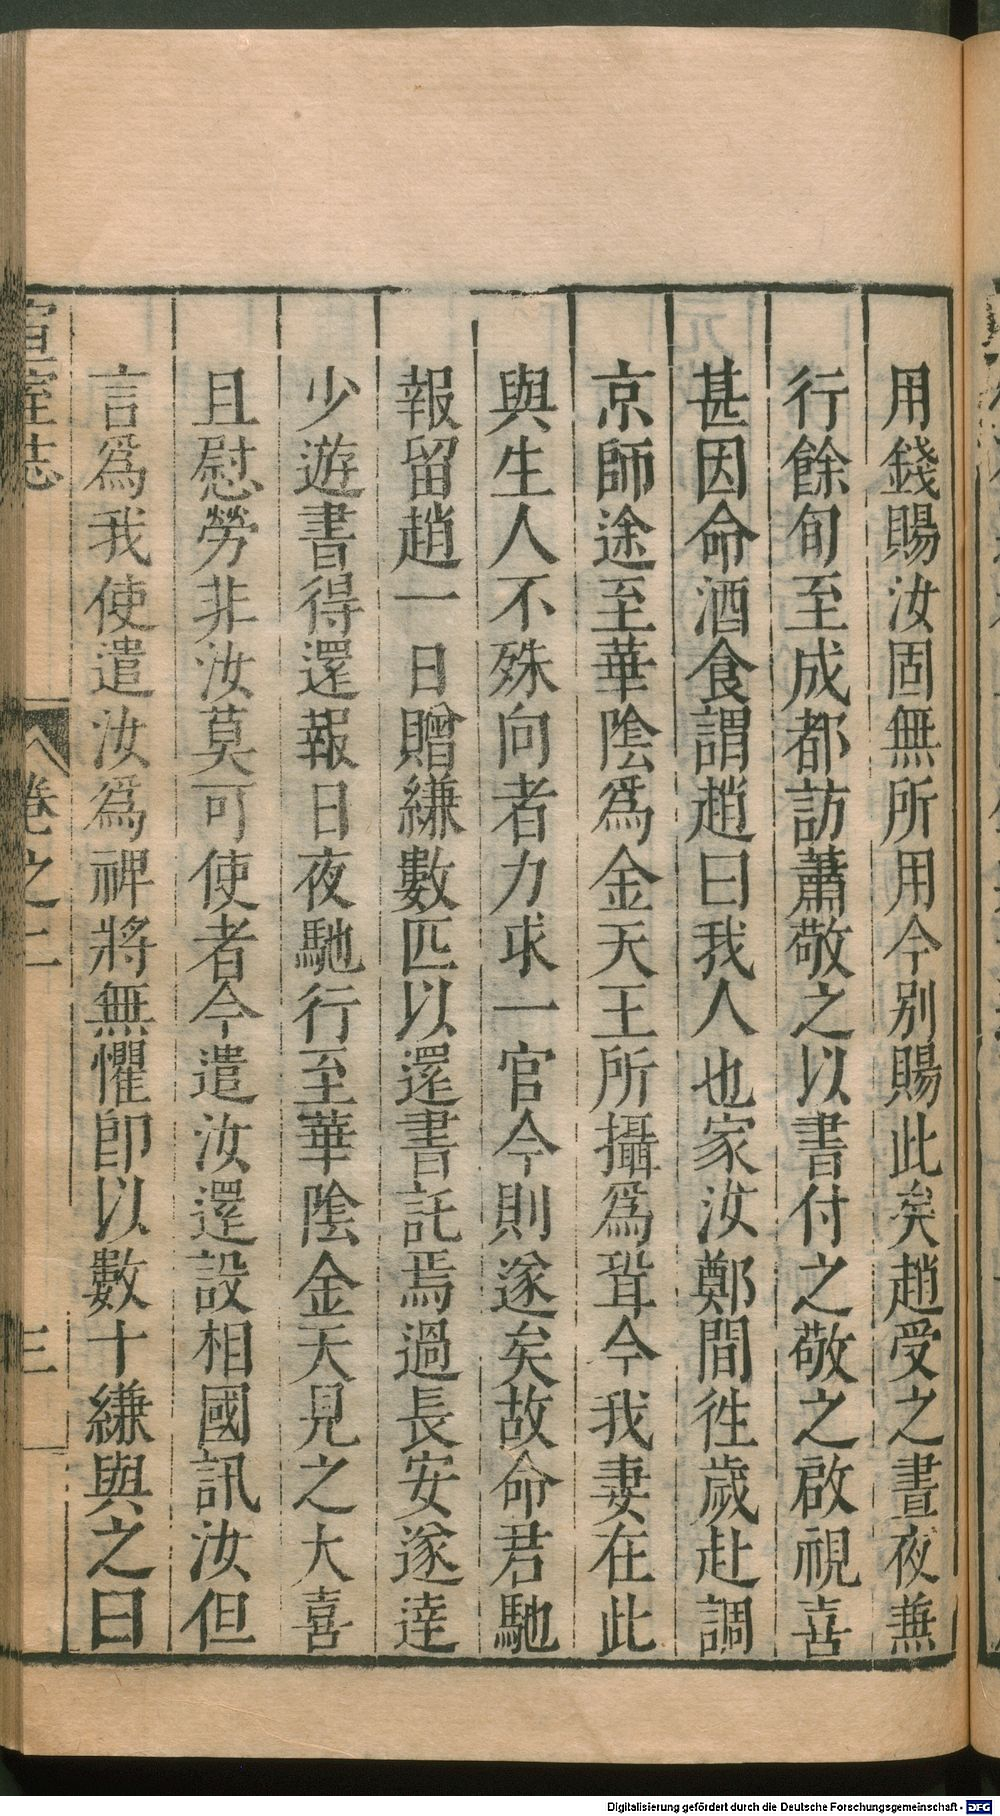 用錢賜汝固無所用今别賜此矣趙受之晝夜兼
行餘旬至成都訪蕭敬之以書付之敬之啟視喜
甚因命酒食謂趙曰我人也家汝鄭間徃歲赴調
京師途至華陰爲金天王所攝爲壻今我妻在此
與生人不殊向者力求一官今則遂矣故命君馳
報留趙一日贈縑數匹以還書託焉過長安遂逹
少遊書得還報日夜馳行至華陰金天見之大喜
且慰勞非汝莫可使者今遣汝還設相國訊汝但
言爲我使遣汝爲裨將無懼卽以數十縑與之曰
宣室志 卷之二 三
Digitalisierung gefördert durch die Deutsche Forschungsgemeinschaft - DFG